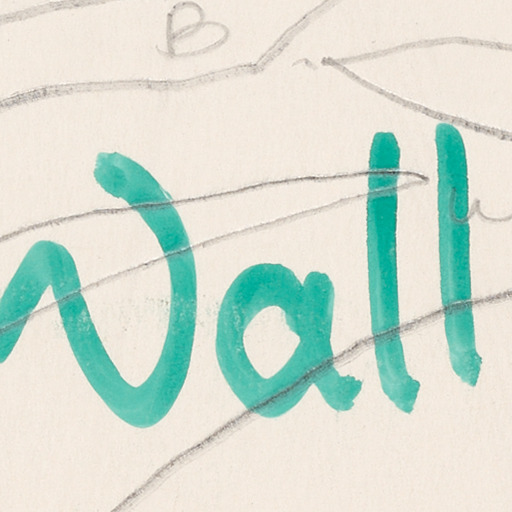 B
Wall